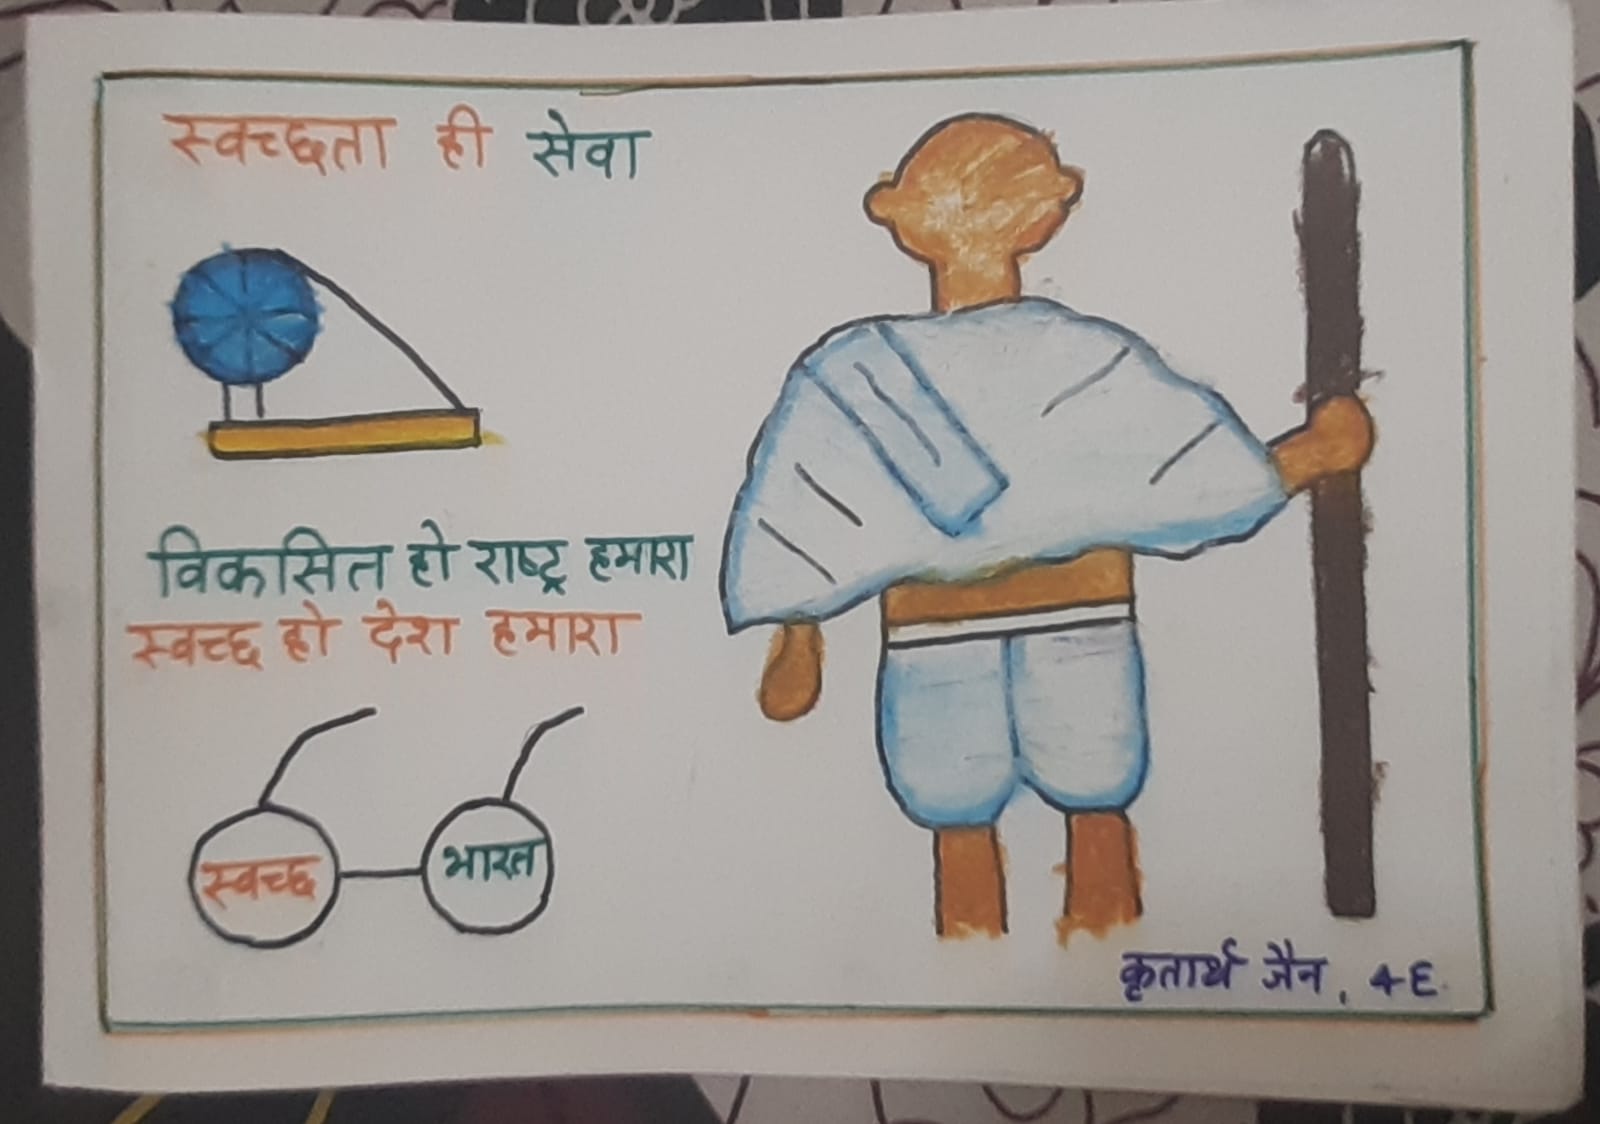 स्वच्छता ही सेवा
विकसित हो राष्ट्र हमारा
स्वच्छ हो देश हमारा
स्वच्छ भारत
कृतार्थ जैन, 4E.